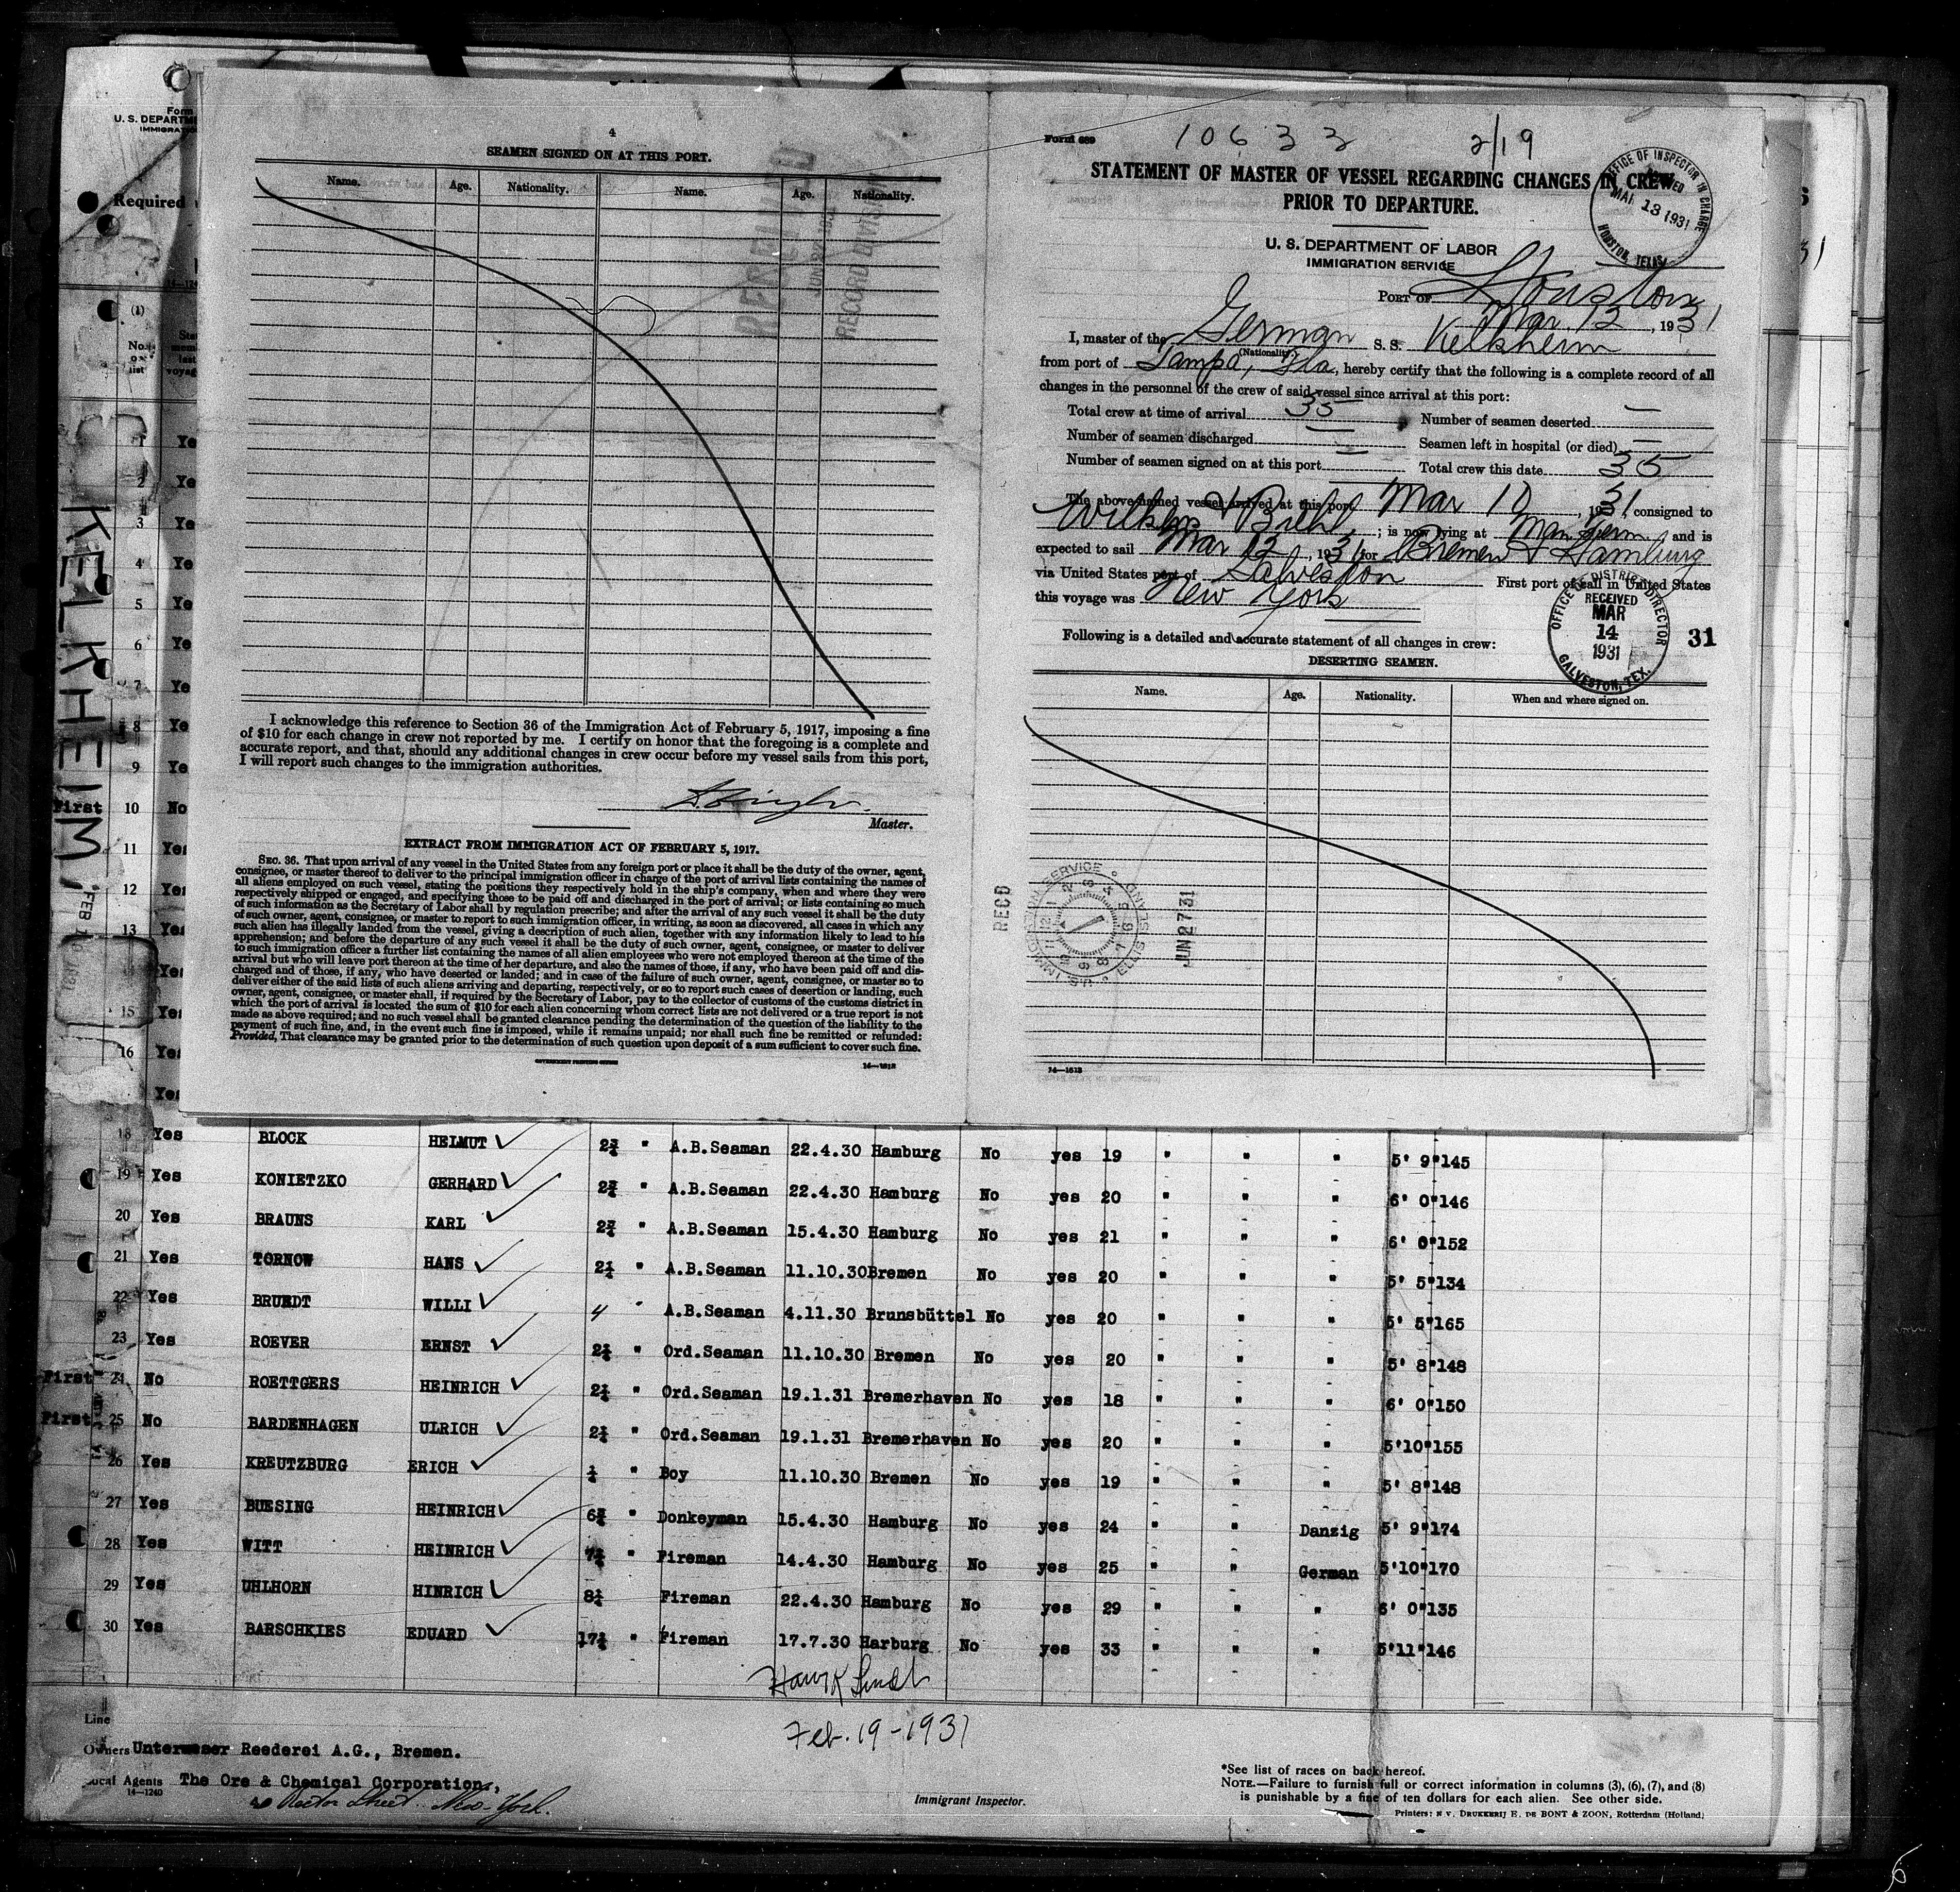 Form
U. S. DEPARTM
IMMIGRATIO
Required
(1)
No.
on
list
KELKHEIM,
4
SEAMEN SIGNED ON AT THIS PORT.
Name. Age. Nationality. Name. Age. Nationality.
RECEIVED
RECORD DIVISION
I acknowledge this reference to Section 36 of the Immigration Act of February 5, 1917, imposing a fine
of $10 for each change in crew not reported by me. I certify on honor that the foregoing is a complete and
accurate report, and that, should any additional changes in crew occur before my vessel sails from this port,
I will report such changes to the immigration authorities.
Master.
EXTRACT FROM IMMIGRATION ACT OF FEBRUARY 5, 1917.
SEC. 36. That upon arrival of any vessel in the United States from any foreign port or place it shall be the duty of the owner, agent,
consignee, or master thereof to deliver to the principal immigration officer in charge of the port of arrival lists containing the names of
all aliens employed on such vessel, stating the positions they respectively hold in the ship's company, when and where they were
respectively shipped or engaged, and specifying those to be paid off and discharged in the port of arrival; or lists containing so much
of such information as the Secretary of Labor shall by regulation prescribe; and after the arrival of any such vessel it shall be the duty
of such owner, agent, consignee, or master to report to such immigration officer, in writing, as soon as discovered, all cases in which any
such alien has illegally landed from the vessel, giving a description of such alien, together with any information likely to lead to his
apprehension; and before the departure of any such vessel it shall be the duty of such owner, agent, consignee, or master to deliver
to such immigration officer a further list containing the names of all alien employees who were not employed thereon at the time of the
arrival but who will leave port thereon at the time of her departure, and also the names of those, if any, who have been paid off and dis-
charged and of those, if any, who have deserted or landed; and in case of the failure of such owner, agent, consignee, or master so to
deliver either of the said lists of such aliens arriving and departing, respectively, or so to report such cases of desertion or landing, such
owner, agent, consignee, or master shall, if required by the Secretary of Labor, pay to the collector of customs of the customs district in
which the port of arrival is located the sum of $10 for each alien concerning whom correct lists are not delivered or a true report is not
made as above required; and no such vessel shall be granted clearance pending the determination of the question of the liability to the
payment of such fine, and, in the event such fine is imposed, while it remains unpaid; nor shall such fine be remitted or refunded:
Provided, That clearance may be granted prior to the determination of such question upon deposit of a sum sufficient to cover such fine.
GOVERNMENT PRINTING OFFICE
14—1513
Form 689
10633 2/19
STATEMENT OF MASTER OF VESSEL REGARDING CHANGES IN CREW
PRIOR TO DEPARTURE.
OFFICE OF INSPECTOR IN CHARGE
MAR 13 1931
HOUSTON, TEXAS
U. S. DEPARTMENT OF LABOR
IMMIGRATION SERVICE
PORT OF Houston
Mar. 12, 1931
I, master of the German S. S. Kelkheim
(Nationality.)
from port of Tampa, Fla, hereby certify that the following is a complete record of all
changes in the personnel of the crew of said vessel since arrival at this port:
Total crew at time of arrival 35 Number of seamen deserted —
Number of seamen discharged — Seamen left in hospital (or died) —
Number of seamen signed on at this port — Total crew this date 35
The above-named vessel arrived at this port Mar 10, 1931, consigned to
Wilkens & Biehl; is now lying at Man Term and is
expected to sail Mar 12, 1931 for Bremen & Hamburg
via United States port of Galveston First port of call in United States
this voyage was New York
OFFICE OF DISTRICT DIRECTOR
RECEIVED
MAR
14
1931
GALVESTON, TEX.
31
Following is a detailed and accurate statement of all changes in crew:
DESERTING SEAMEN.
Name. Age. Nationality. When and where signed on.
RECD
U.S. IMMIGRATION SERVICE ELLIS ISLAND
JUN 27 31
14—1513
18 Yes BLOCK HELMUT 2¾ " A.B.Seaman 22.4.30 Hamburg No yes 19 " " " 5' 9" 145
19 Yes KONIETZKO GERHARD 2¾ " A.B.Seaman 22.4.30 Hamburg No yes 20 " " " 6' 0" 146
20 Yes BRAUNS KARL 2¾ " A.B.Seaman 15.4.30 Hamburg No yes 21 " " " 6' 0" 152
21 Yes TORNOW HANS 2¼ " A.B.Seaman 11.10.30 Bremen No yes 20 " " " 5' 5" 134
22 Yes BRUNDT WILLI 4 " A.B.Seaman 4.11.30 Brunsbüttel No yes 20 " " " 5' 5" 165
23 Yes ROEVER ERNST 2¼ " Ord.Seaman 11.10.30 Bremen No yes 20 " " " 5' 8" 148
First 24 No ROETTGERS HEINRICH 2¼ " Ord.Seaman 19.1.31 Bremerhaven No yes 18 " " " 6' 0" 150
First 25 No BARDENHAGEN ULRICH 2¼ " Ord.Seaman 19.1.31 Bremerhaven No yes 20 " " " 5'10" 155
26 Yes KREUTZBURG ERICH ¼ " Boy 11.10.30 Bremen No yes 19 " " " 5' 8" 148
27 Yes BUESING HEINRICH 6¾ " Donkeyman 15.4.30 Hamburg No yes 24 " " Danzig 5' 9" 174
28 Yes WITT HEINRICH 7¾ " Fireman 14.4.30 Hamburg No yes 25 " " German 5'10" 170
29 Yes UHLHORN HINRICH 8¼ Fireman 22.4.30 Hamburg No yes 29 " " " 6' 0" 135
30 Yes BARSCHKIES EDUARD 17¾ " Fireman 17.7.30 Harburg No yes 33 " " " 5'11" 146
Feb. 19-1931
Line
Owners Unterweser Reederei A.G., Bremen.
Local Agents The Ore & Chemical Corporation,
14—1240
40 Rector Street. New-York.
Immigrant Inspector.
*See list of races on back hereof.
NOTE.—Failure to furnish full or correct information in columns (3), (6), (7), and (8)
is punishable by a fine of ten dollars for each alien. See other side.
Printers: N V. DRUKKERIJ E. DE BONT & ZOON, Rotterdam (Holland)